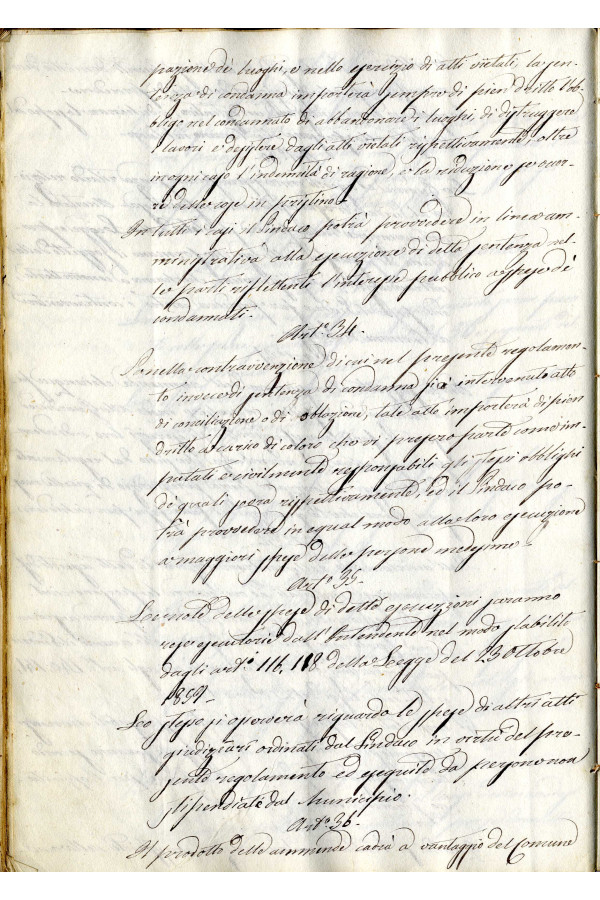 pazione de' luoghi, o nello esercizio di atti vietati, la sen-
tenza di condanna importerà sempre di pien dritto l'ob-
bligo nel condannato di abbandonare i luoghi, di distruggere
i lavori e desistere dagli atti vietati rispettivamente, oltre
in ogni caso l'indennità di ragione, e la riduzione
re delle cose in pristino.
In tutti i casi il Sindaco potrà provvedere in linea am-
ministrativa alla esecuzione di detta sentenza nel-
le parti riflettenti l'interesse pubblico a spese de'
condannati.
Art.° 34.
Se nella contravvenzione di cui nel presente regolamen-
to invece di sentenza di condanna sia intervenuto atto
di conciliazione o di oblazione, tale atto importerà di pien
dritto a carico di coloro che vi presero parte come im-
putati e civilmente responsabili gli stessi obblighi
de' quali sopra rispettivamente, ed il Sindaco po-
trà provvedere in egual modo alla loro esecuzione
a maggiori spese delle persone medesime.
Art.° 35.
Le note delle spese di dette esecuzioni saranno
rese esecutorie dall'Intendente nel modo stabilito
dagli art.i 116, 118 della Legge del 23 Ottobre
1859.
Lo stesso si opererà riguardo le spese di altri atti
giudiziari ordinati dal Sindaco in virtù del pre-
sente regolamento ed eseguite da persone non
stipendiate dal Municipio.
Art.° 36.
Il prodotto delle ammende cadrà a vantaggio del Comune